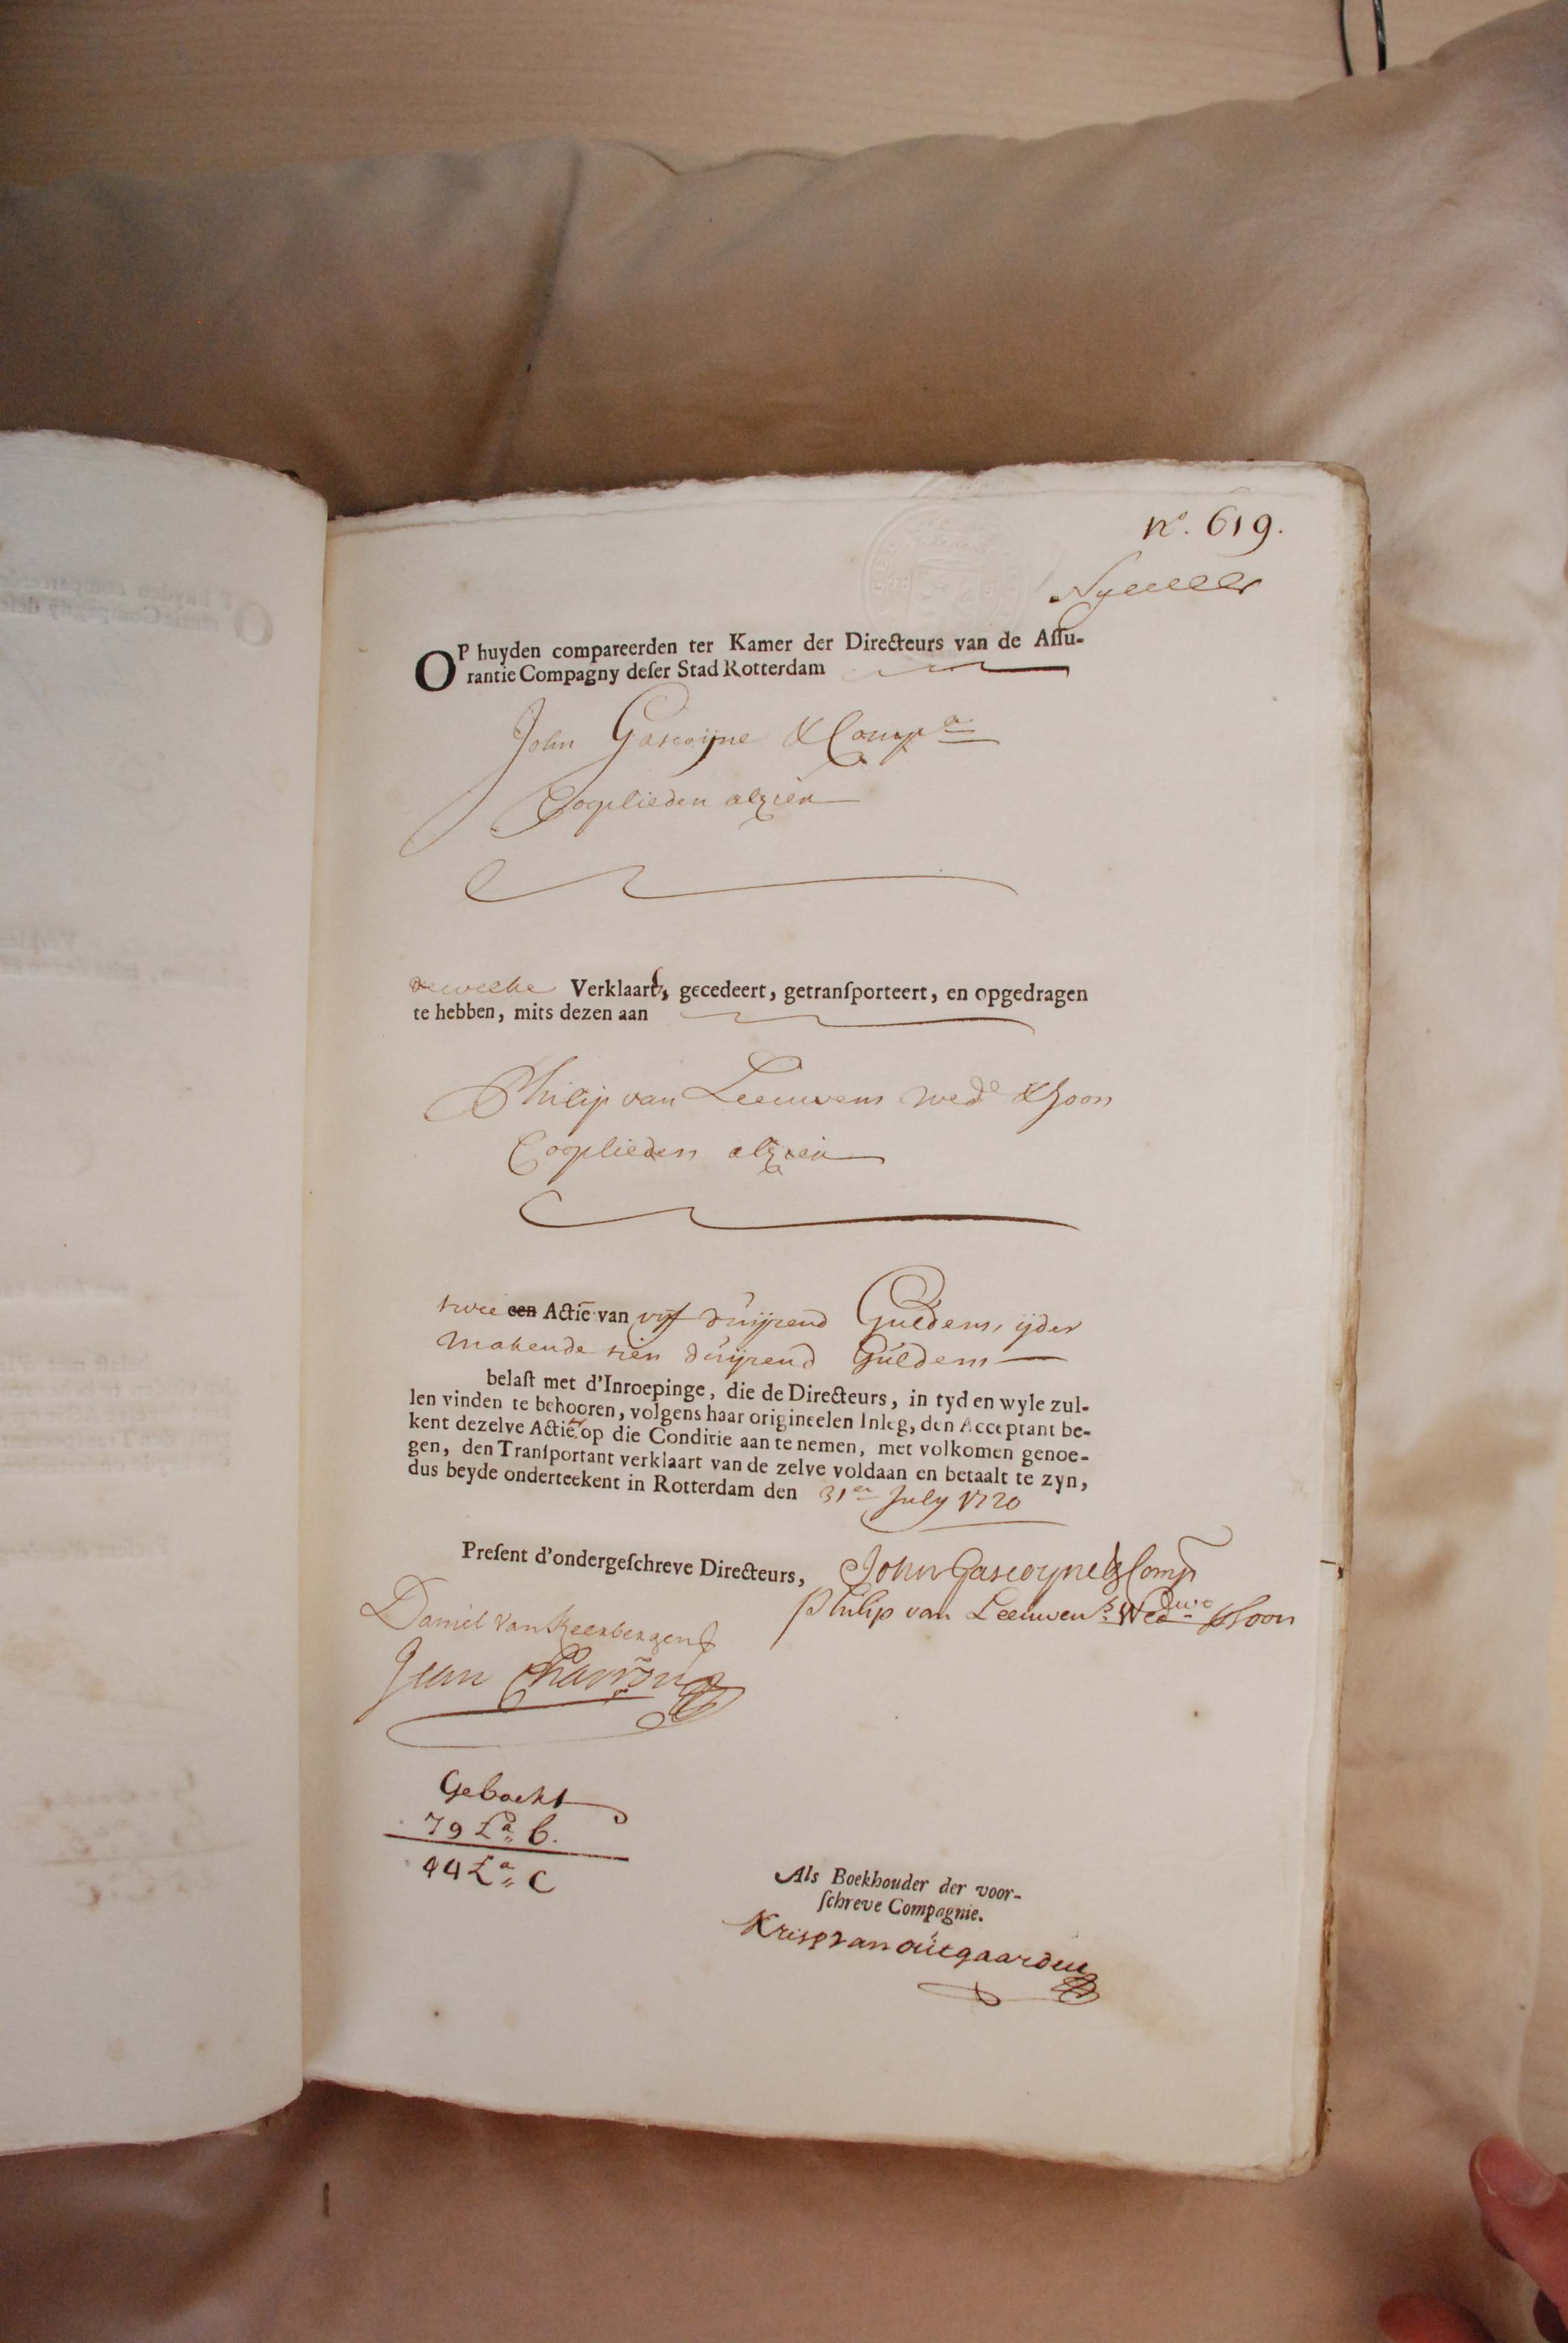 nº. 619.
OP huyden compareerden ter Kamer der Directeurs van de Aſſu-
rantie Compagny deſer Stad Rotterdam
John Gascoijne & Compª
Cooplieden alhier
dewelke Verklaart, gecedeert, getranſporteert, en opgedragen
te hebben, mits dezen aan
Philip van Leeuwens Wedᵉ & Zoon
Cooplieden alhier
twee een Actie van vijf duijzend Guldens, ijder
makende tien duijzend Guldens
belaſt met d'Inroepinge, die de Directeurs, in tyd en wyle zul-
len vinden te behooren, volgens haar origineelen Inleg, den Acceptant be-
kent dezelve Actie op die Conditie aan te nemen, met volkomen genoe-
gen, den Tranſportant verklaart van de zelve voldaan en betaalt te zyn,
dus beyde onderteekent in Rotterdam den 31en July 1720
Preſent d'ondergeſchreve Directeurs,
John Gascoyne & Comp
Philip van Leeuwens Weduwe & Soon
Daniel van Keerbergen
Jean Charron
Geboekt
79 Lª b.
44 Lª C
Als Boekhouder der voor-
ſchreve Compagnie.
Krisp van outgaarden